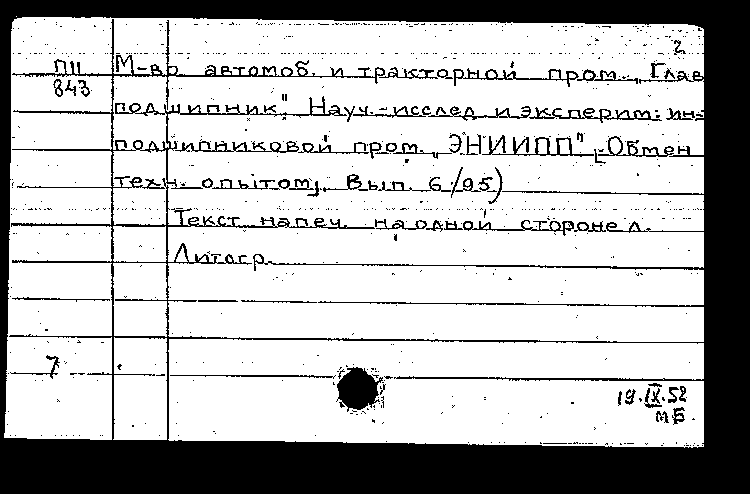 2
ПII М-во автомоб. и тракторной пром. „Глав
843
подшипник". Науч.-исслед и эксперим. ин-
подшипниковой пром. „ЭНИИПП" [Обмен
техн. опытом]. Вып. 6/95)
Текст напеч. на одной стороне л.
Литогр.
7
19.IX.52
МБ